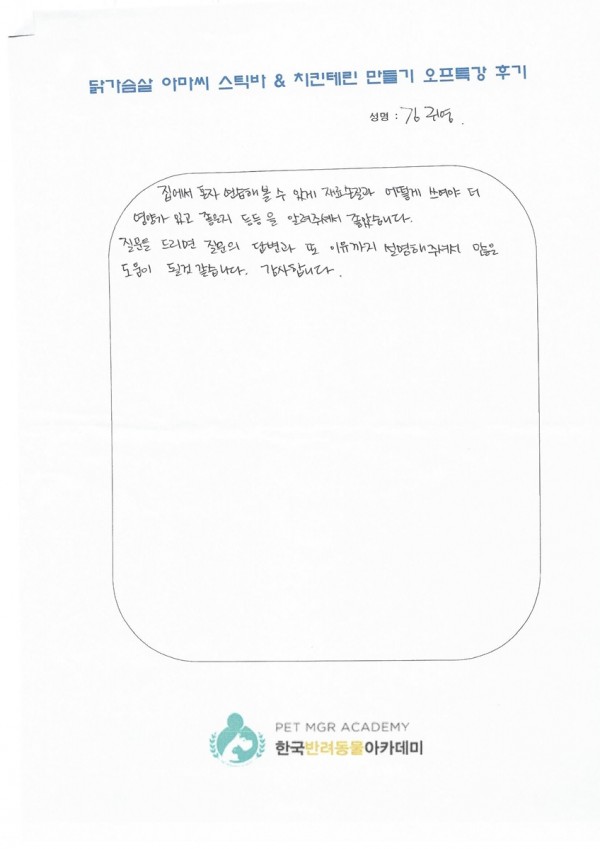 닭가슴살 아마씨 스틱바 & 치킨테린 만들기 오프특강 후기
성명 : 김귀영
집에서 혼자 연습해볼 수 있게 재료손질과 어떻게 쓰여야 더
영양가 있고 좋은지 등등을 알려주셔서 좋았습니다.
질문을 드리면 질문의 답변과 또 이유까지 설명해주셔서 많은
도움이 될것 같습니다. 감사합니다.
PET MGR ACADEMY
한국반려동물아카데미